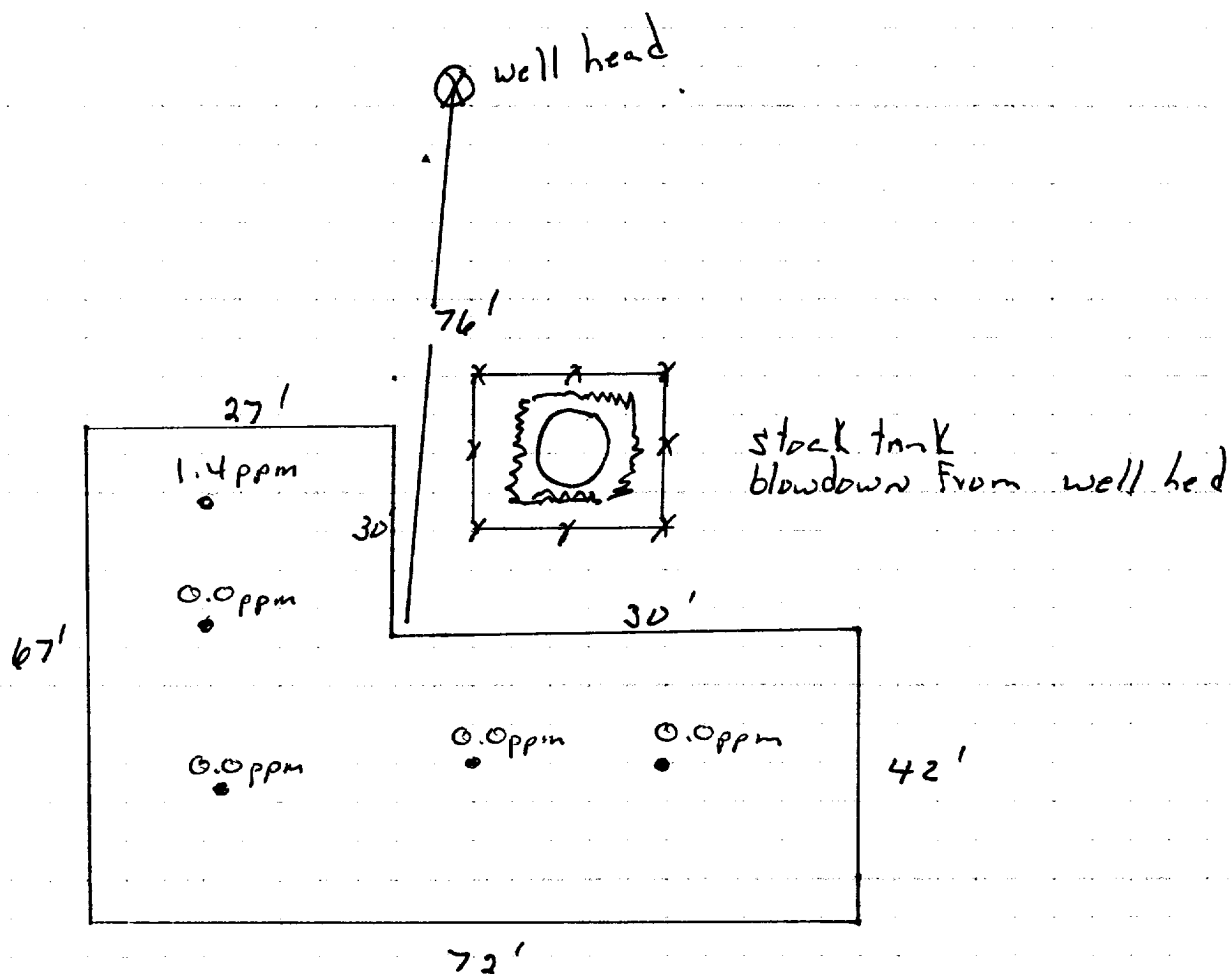 well head
76'
27'
1.4ppm
stock tank
blowdown From well hed
30
0.0ppm
30'
67'
0.0ppm
0.0ppm
0.0ppm
42'
72'